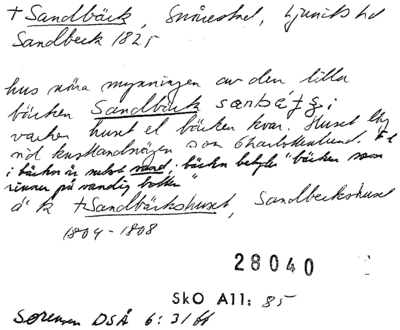 † Sandbäck, Snårestad, Ljunits hd
Sandbeck 1825
hus nära mynningen av den lilla
bäcken Sandbäck
varken huset el bäcken kvar. Huset låg
vid kustlandsvägen som Charlottenlund.
i bäcken är mkt sand; bäcken betyder "bäcken som
rinner på sandig botten"
â k †Sandbäckshuset, Sandbeckshuset
1804-1808
28040
SkO A11: 85
Sørensen DSÅ 6: 31